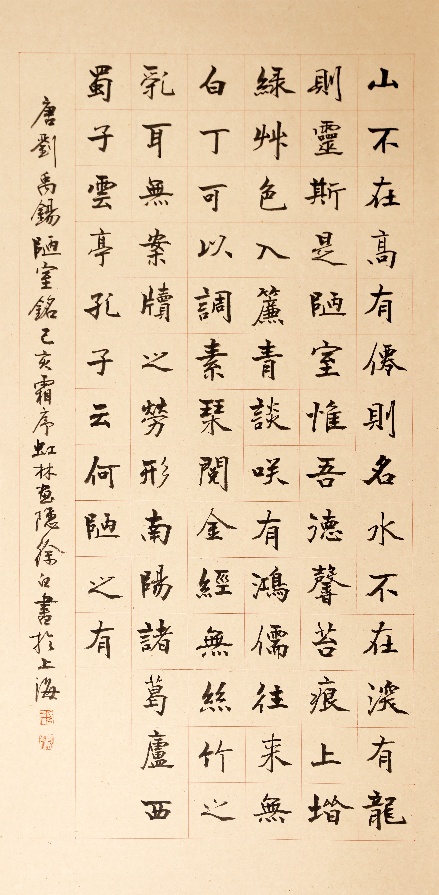 山不在高有僊則名水不在深有龍
則靈斯是陋室惟吾德馨苔痕上堦
綠艸色入簾青談咲有鴻儒往来無
白丁可以調素琹閱金經無絲竹之
乱耳無案牘之勞形南陽諸葛廬西
蜀子雲亭孔子云何陋之有
唐劉禹錫陋室銘己亥霜序虹林画隱徐白書於上海